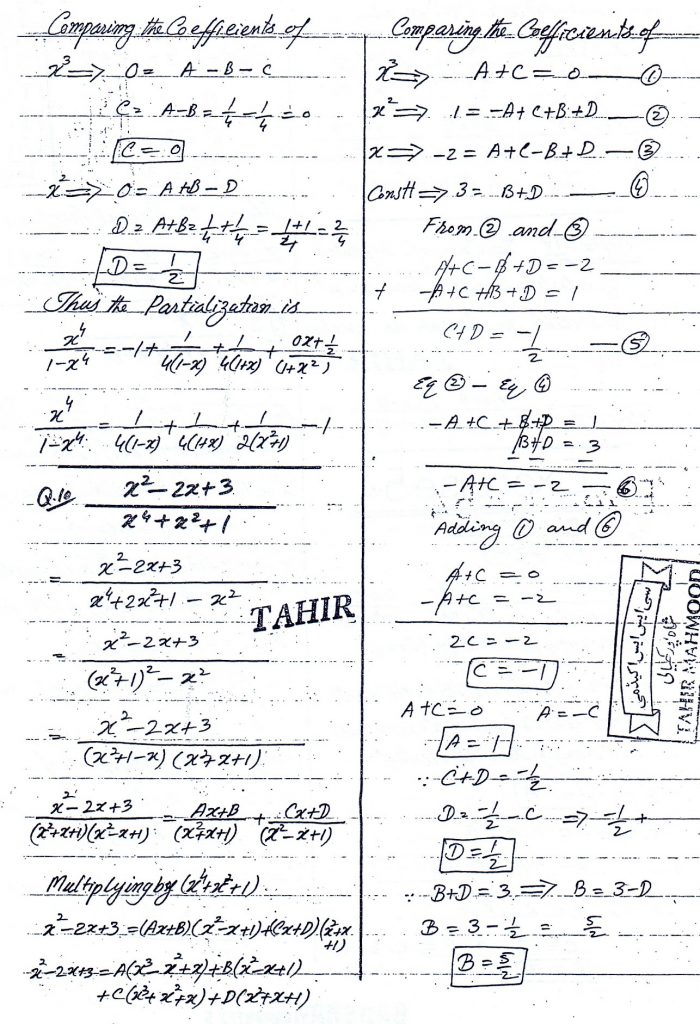 Comparing the Coefficients of
x³ ⟹ 0 = A - B - C
C = A-B = 1/4 - 1/4 = 0
C = 0
x² ⟹ 0 = A+B-D
D = A+B = 1/4 + 1/4 = 1+1/4 = 2/4
D = 1/2
Thus the Partialization is
x⁴/(1-x⁴) = -1 + 1/4(1-x) + 1/4(1+x) + (0x+1/2)/(1+x²)
x⁴/(1-x⁴) = 1/4(1-x) + 1/4(1+x) + 1/2(x²+1) - 1
Q.10 (x²-2x+3)/(x⁴+x²+1)
= (x²-2x+3)/(x⁴+2x²+1-x²)
TAHIR
= (x²-2x+3)/((x²+1)²-x²)
= (x²-2x+3)/((x²+1-x)(x²+x+1))
(x²-2x+3)/((x²+x+1)(x²-x+1)) = (Ax+B)/(x²+x+1) + (Cx+D)/(x²-x+1)
Multiplying by (x⁴+x²+1)
x²-2x+3 = (Ax+B)(x²-x+1)+(Cx+D)(x²+x+1)
x²-2x+3 = A(x³-x²+x)+B(x²-x+1)
+C(x³+x²+x)+D(x²+x+1)
Comparing the Coefficients of
x³ ⟹ A+C = 0 — ①
x² ⟹ 1 = -A+C+B+D — ②
x ⟹ -2 = A+C-B+D — ③
Constt ⟹ 3 = B+D — ④
From ② and ③
A+C-B+D = -2
+ -A+C+B+D = 1
C+D = -1/2 — ⑤
Eq ② - Eq ④
-A+C+B+D = 1
B+D = 3
- - -
-A+C = -2 — ⑥
Adding ① and ⑥
A+C = 0
-A+C = -2
2C = -2
C = -1
A+C=0 A=-C
A = 1
∵ C+D = -1/2
D = -1/2 - C ⟹ -1/2 +
D = 1/2
∵ B+D = 3 ⟹ B = 3-D
B = 3 - 1/2 = 5/2
B = 5/2
سی ایس ایس اکیڈمی
TAHIR MAHMOOD